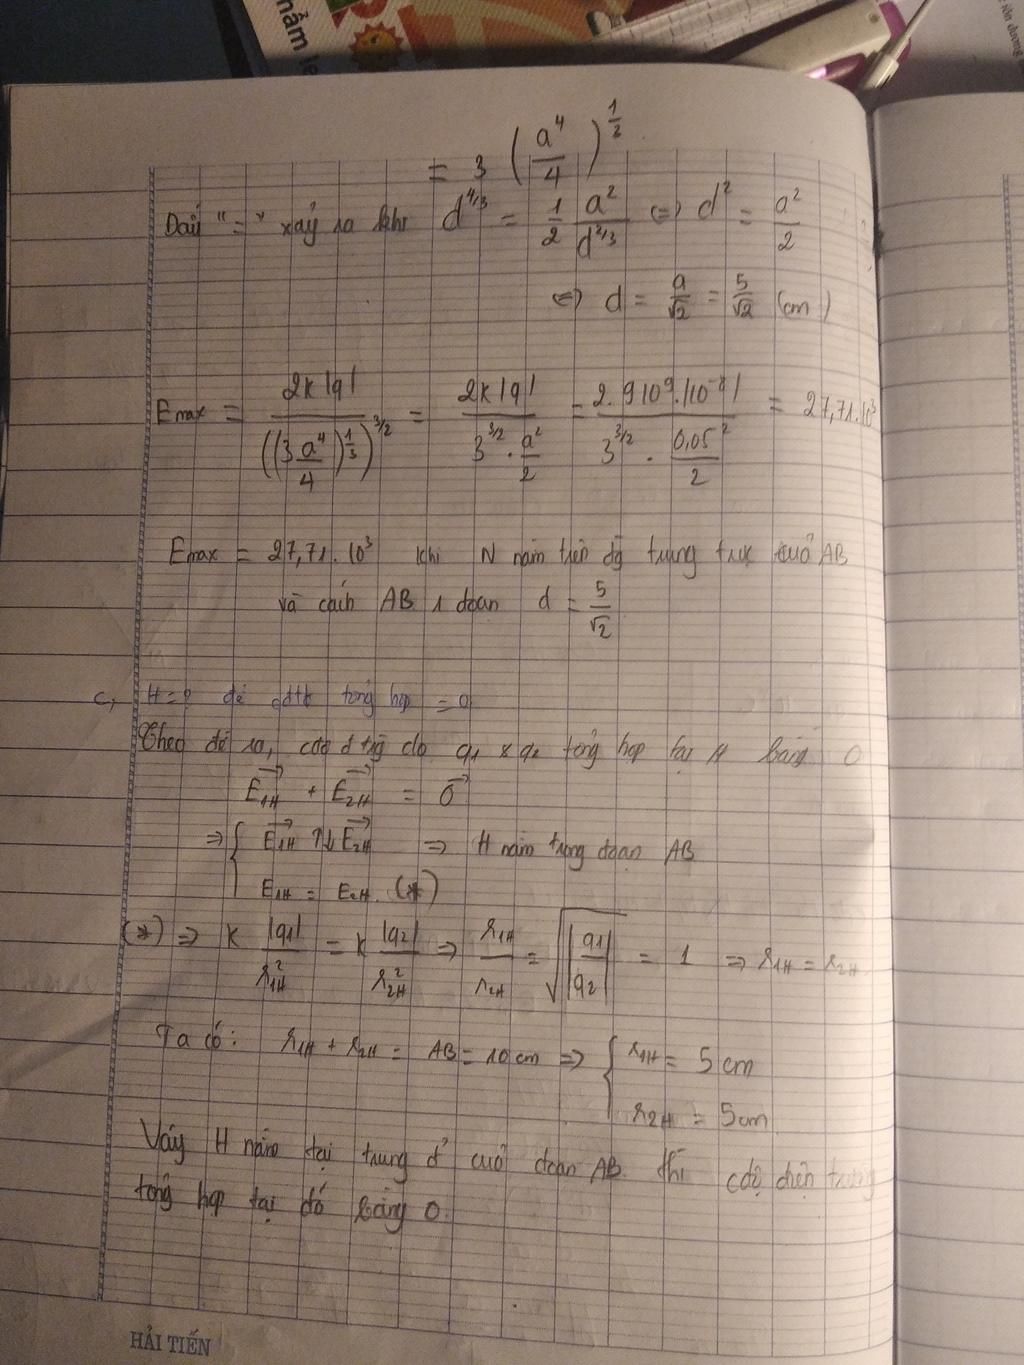 nằm le
tôn dương
= 3 (a⁴/4)^(1/3)
Dấu "=" xảy ra khi d^(4/3) = 1/2 a²/d^(2/3) ⇔ d² = a²/2
⇔ d = a/√2 = 5/√2 (cm)
Emax = 2k|q| / ((3 a⁴/4)^(1/3))^(3/2) = 2k|q| / (3^(3/2) · a²/2) = 2.9.10⁹.|10⁻⁸| / (3^(3/2) · 0,05²/2) = 27,71.10³
Emax = 27,71.10³ khi N nằm trên đg trung trực của AB
và cách AB 1 đoạn d = 5/√2
c, H = ? để cđđt tổng hợp = 0
Theo đề ra, cđđtrg do q₁ & q₂ tổng hợp tại H bằng 0
E₁H→ + E₂H→ = 0→
⇒ { E₁H→ ↑↓ E₂H→ ⇒ H nằm trong đoạn AB
E₁H = E₂H. (*)
(*) ⇒ k |q₁|/r₁H² = k |q₂|/r₂H² ⇒ r₁H/r₂H = √|q₁/q₂| = 1 ⇒ r₁H = r₂H
Ta có: r₁H + r₂H = AB = 10cm ⇒ { r₁H = 5cm
r₂H = 5cm
Vậy H nằm tại trung đ' của đoạn AB thì cđộ điện trường
tổng hợp tại đó bằng 0.
HẢI TIẾN